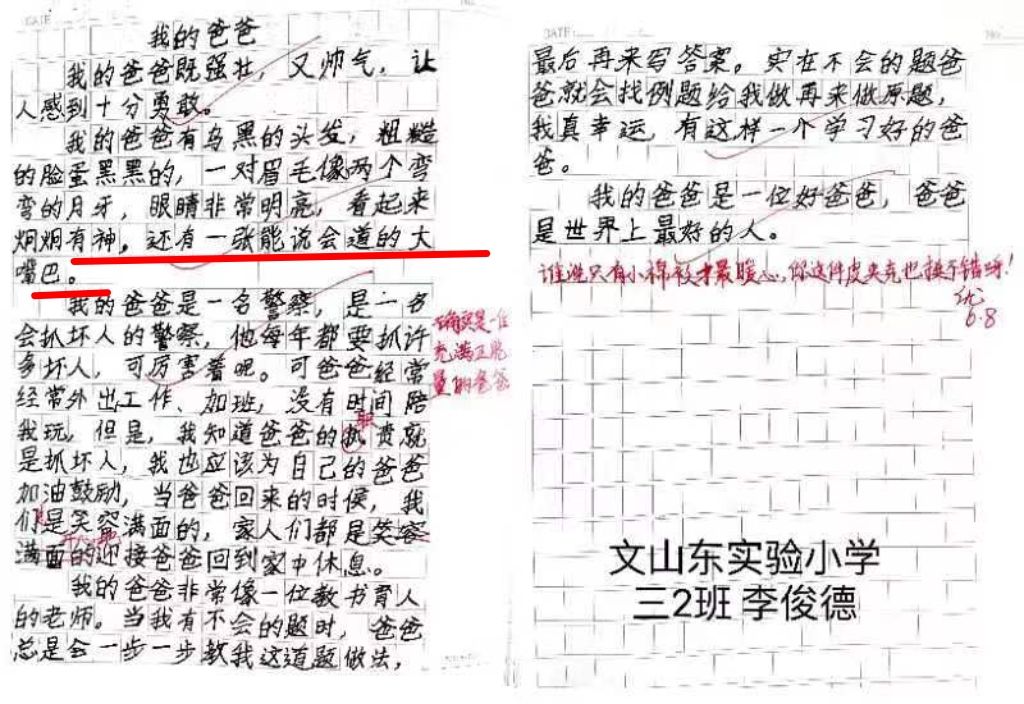 我的爸爸
我的爸爸既强壮，又帅气，让
人感到十分勇敢。
我的爸爸有乌黑的头发，粗糙
的脸蛋黑黑的，一对眉毛像两个弯
弯的月牙，眼睛非常明亮，看起来
炯炯有神。还有一张能说会道的大
嘴巴。
我的爸爸是一名警察，是一名
会抓坏人的警察，他每年都要抓许
多坏人，可厉害着呢。可爸爸经常
经常外出工作、加班，没有时间陪
我玩，但是，我知道爸爸的执责就
职
是抓坏人，我也应该为自己的爸爸
加油鼓励，当爸爸回来的时候，我
们是笑容满面的，家人们都是笑容
满面的迎接爸爸回到家中休息。
我的爸爸非常像一位教书育人
的老师。当我有不会的题时，爸爸
总是会一步一步教我这道题做法，
的确是一位
充满正能
量的爸爸
DATE
最后再来写答案。实在不会的题爸
爸就会找例题给我做再来做原题，
我真幸运，有这样一个学习好的爸
爸。
我的爸爸是一位好爸爸，爸爸
是世界上最好的人。
谁说只有小棉袄才最暖心，你这件皮夹克也挺不错呀！
优
6.8
文山东实验小学
三2班 李俊德